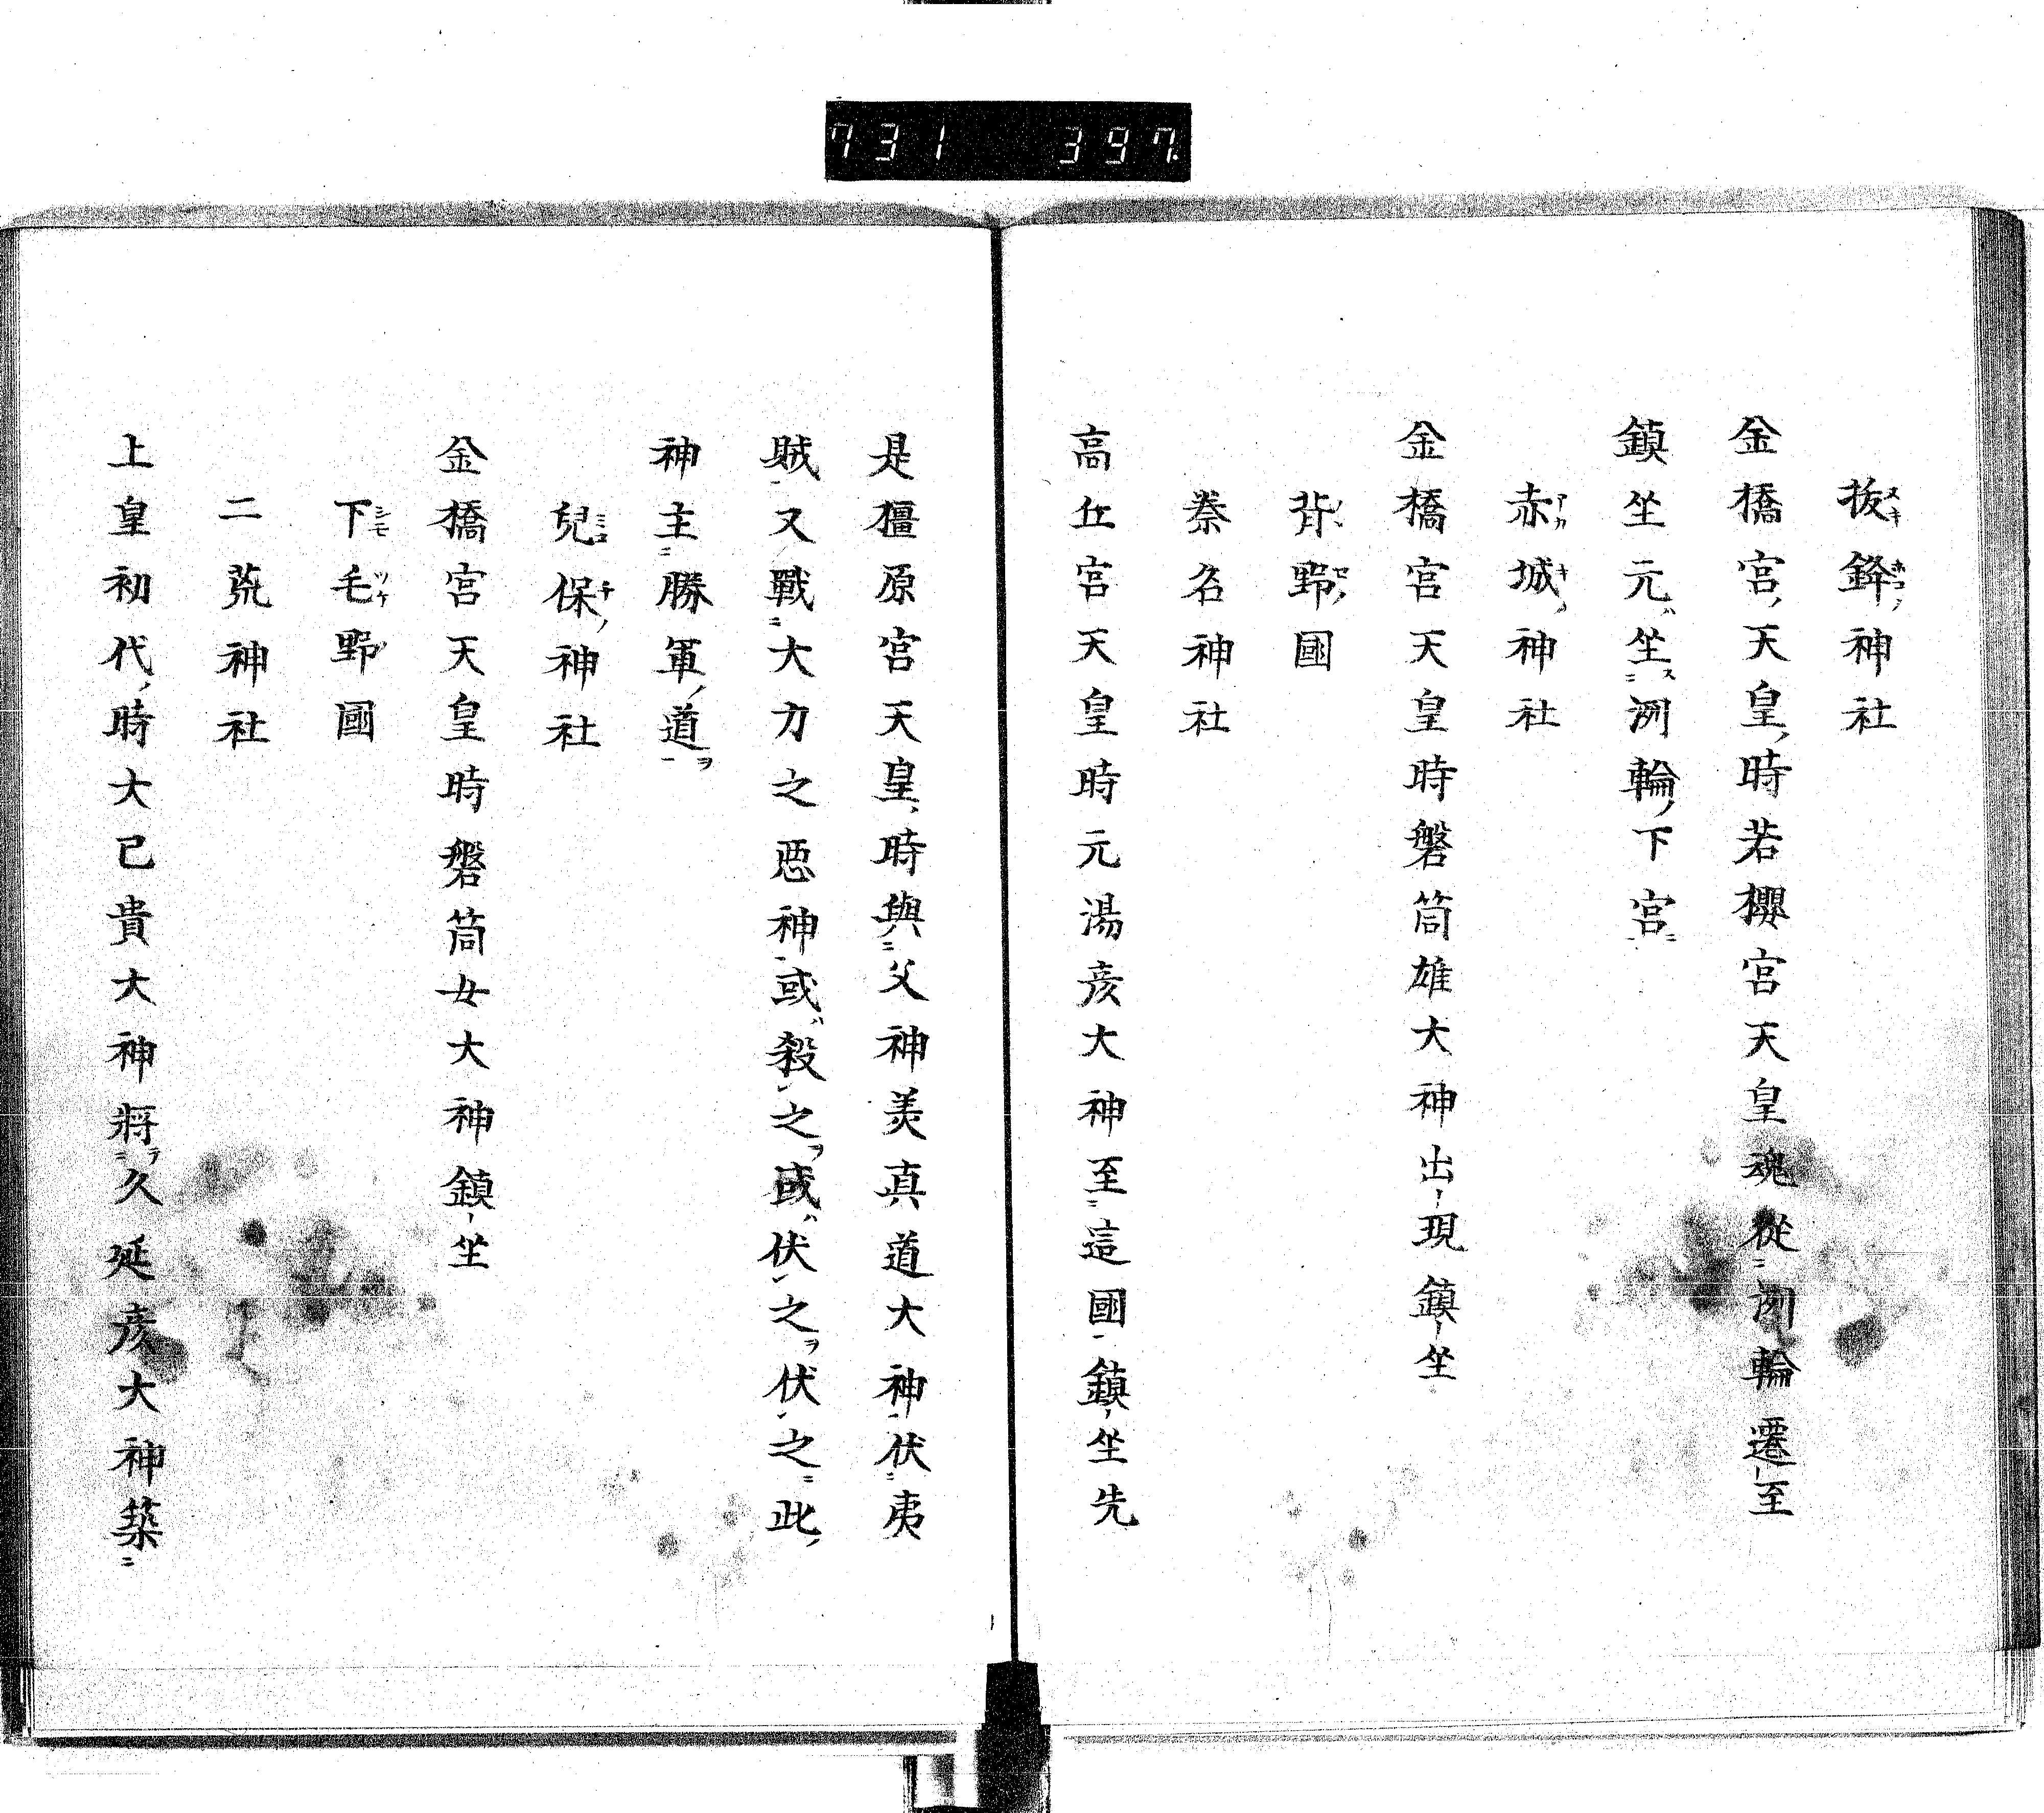 731 397
抜鉾神社
金橋宮天皇時若櫻宮天皇魂從洌輪遷至
鎮坐元坐洌輪下宮
赤城神社
金橋宮天皇時磐筒雄大神出現鎮坐
背野國
桊名神社
高丘宮天皇時元湯彦大神至這國鎮坐先
是橿原宮天皇時與父神美真道大神伏夷
賊又戰大力之惡神或殺之或伏之伏之此
神主勝軍道
兒保神社
金橋宮天皇時磐筒女大神鎮坐
下毛野國
二荒神社
上皇初代時大己貴大神將久延彦大神築